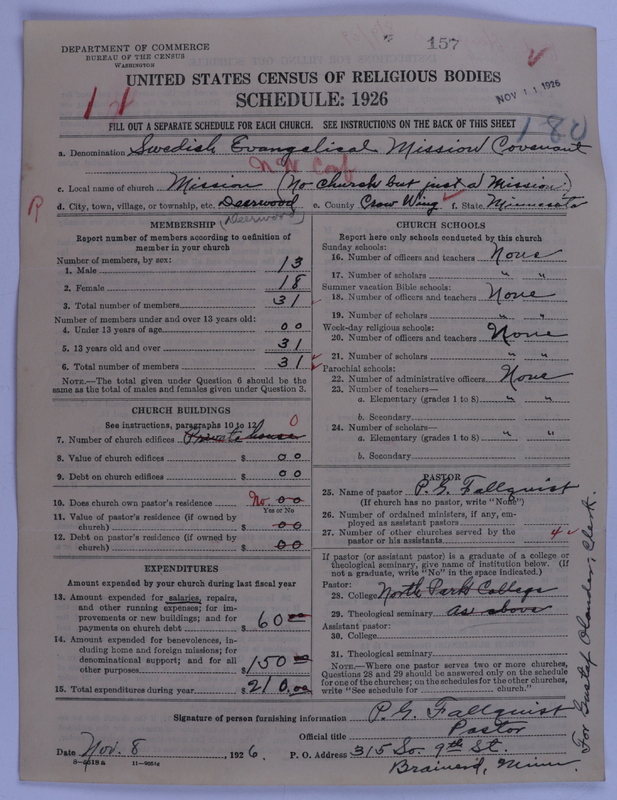 157
DEPARTMENT OF COMMERCE
BUREAU OF THE CENSUS
WASHINGTON
UNITED STATES CENSUS OF RELIGIOUS BODIES
SCHEDULE: 1926
NOV 11 1926
FILL OUT A SEPARATE SCHEDULE FOR EACH CHURCH. SEE INSTRUCTIONS ON THE BACK OF THIS SHEET
180
a. Denomination Swedish Evangelical Mission Covenant
c. Local name of church Mission (No church but just a Mission.)
R
d. City, town, village, or township, etc. Deerwood e. County Crow Wing f. State Minnesota
(Deerwood)
MEMBERSHIP
Report number of members according to definition of
member in your church
Number of members, by sex:
1. Male 13
2. Female 18
3. Total number of members 31
Number of members under and over 13 years old:
4. Under 13 years of age 00
5. 13 years old and over 31
6. Total number of members 31
NOTE.—The total given under Question 6 should be the
same as the total of males and females given under Question 3.
CHURCH BUILDINGS
See instructions, paragraphs 10 to 12 0
7. Number of church edifices Private house
8. Value of church edifices $ 00
9. Debt on church edifices $ 00
10. Does church own pastor's residence No. 00
Yes or No
11. Value of pastor's residence (if owned by
church) $ 00
12. Debt on pastor's residence (if owned by
church) $ 00
EXPENDITURES
Amount expended by your church during last fiscal year
13. Amount expended for salaries, repairs,
and other running expenses; for im-
provements or new buildings; and for
payments on church debt $ 60 00
14. Amount expended for benevolences, in-
cluding home and foreign missions; for
denominational support; and for all
other purposes $ 150 00
15. Total expenditures during year $ 210.00
CHURCH SCHOOLS
Report here only schools conducted by this church
Sunday schools:
16. Number of officers and teachers None
17. Number of scholars " "
Summer vacation Bible schools:
18. Number of officers and teachers None
19. Number of scholars " "
Week-day religious schools:
20. Number of officers and teachers None
21. Number of scholars " "
Parochial schools:
22. Number of administrative officers None
23. Number of teachers—
a. Elementary (grades 1 to 8) " "
b. Secondary
24. Number of scholars—
a. Elementary (grades 1 to 8) " "
b. Secondary
PASTOR
25. Name of pastor P. G. Fallquist
(If church has no pastor, write "None")
26. Number of ordained ministers, if any, em-
ployed as assistant pastors
27. Number of other churches served by the
pastor or his assistants 4
If pastor (or assistant pastor) is a graduate of a college or
theological seminary, give name of institution below. (If
not a graduate, write "No" in the space indicated.)
Pastor:
28. College North Park College
29. Theological seminary as above
Assistant pastor:
30. College
31. Theological seminary
NOTE.—Where one pastor serves two or more churches,
Questions 28 and 29 should be answered only on the schedule
for one of the churches; on the schedules for the other churches,
write "See schedule for church."
Signature of person furnishing information P. G. Fallquist
Official title Pastor
Date Nov. 8, 1926. P. O. Address 315 So. 9th St.
Brainerd, Minn.
For Gustaf Olander, Clerk.